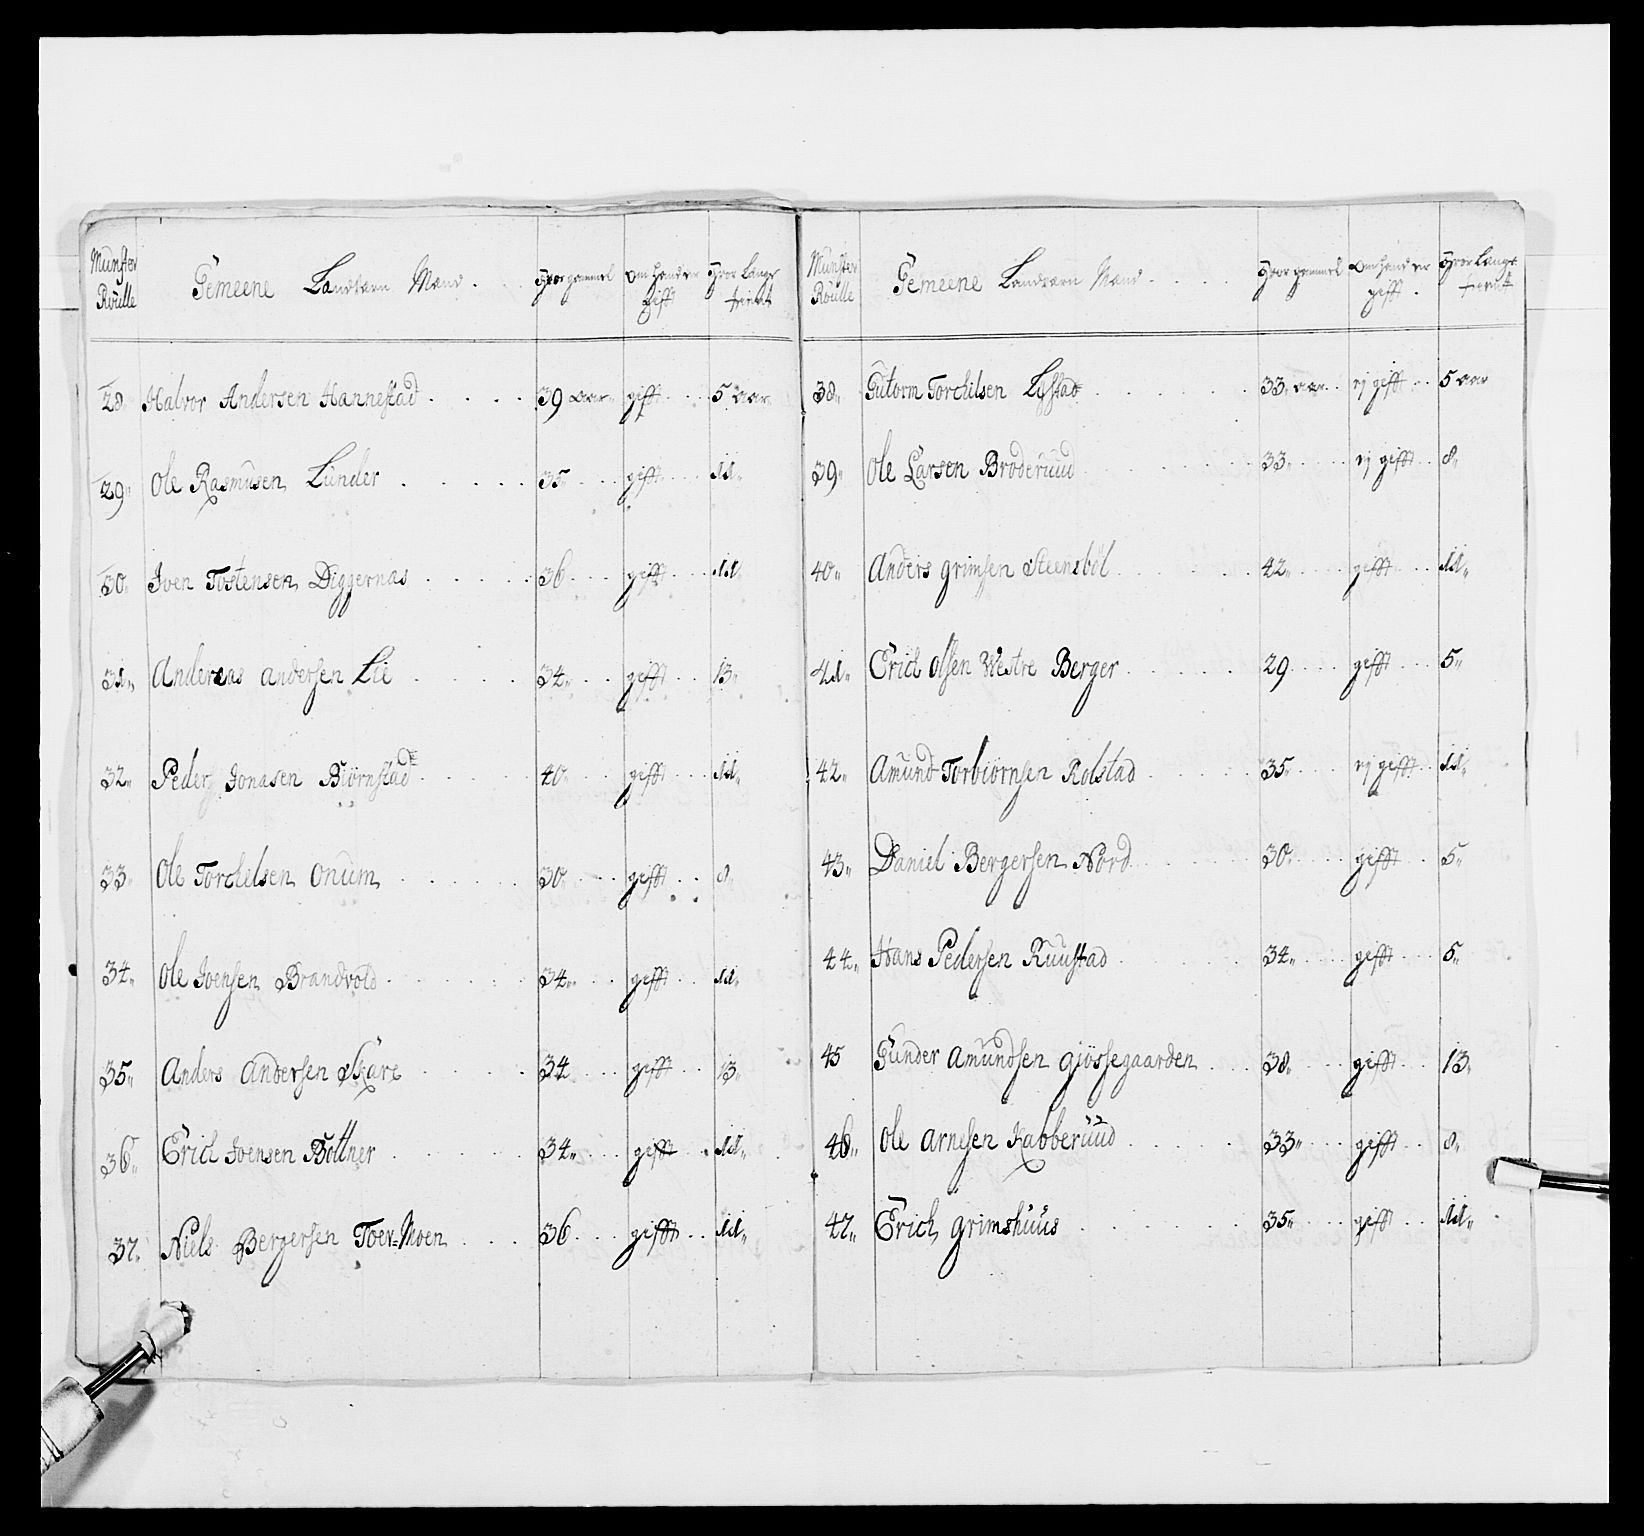 Munster Roulle | Gemeene Landvern Mand | Hvor gammel | Om hand er gifft | Hvor Længe tient
28. Halvor Andersen Hannestad 39 aar gifft 5 aar
29. Ole Rasmusen Lunder 35 gifft 11.
30. Iven Tostensen Diggernæs 36 gifft 11.
31. Andereas Andersen Lie 34. gifft 13.
32. Peder Jonasen Biørnstad 40. gifft 11.
33. Ole Torchelsen Onum 30. gifft 8.
34. Ole Joensen Brandvold 34. gifft 11.
35. Anders Andersen Skare 34 gifft 13.
36. Erich Joensen Bøltner 34. gifft 11.
37. Niels Bergersen Toer-Moen 36 gifft 11.
Munster Roulle | Gemeene Landvern Mand | Hvor gammel | Om hand er gifft | Hvor Længe tient
38. Gutorm Torchilsen Lystad 33. aar ej gifft 5 aar
39. Ole Larsen Broderuud 33. ej gifft 8.
40. Anders Grimsen Steensbøl 42. gifft 11.
41. Erich Olsen Westre Berger 29 gifft 5.
42. Amund Torbiørnsen Rolstad 35. ej gifft 11.
43. Daniel Bergersen Nord 30. gifft 5.
44. Hans Pedersen Ruustad 34. gifft 5.
45 Gunder Amundsen Giøssegaarden 38. gifft 13.
46. Ole Arnesen Kabberuud 33. gifft 8.
47. Erich Grimshuus 35. gifft 11.